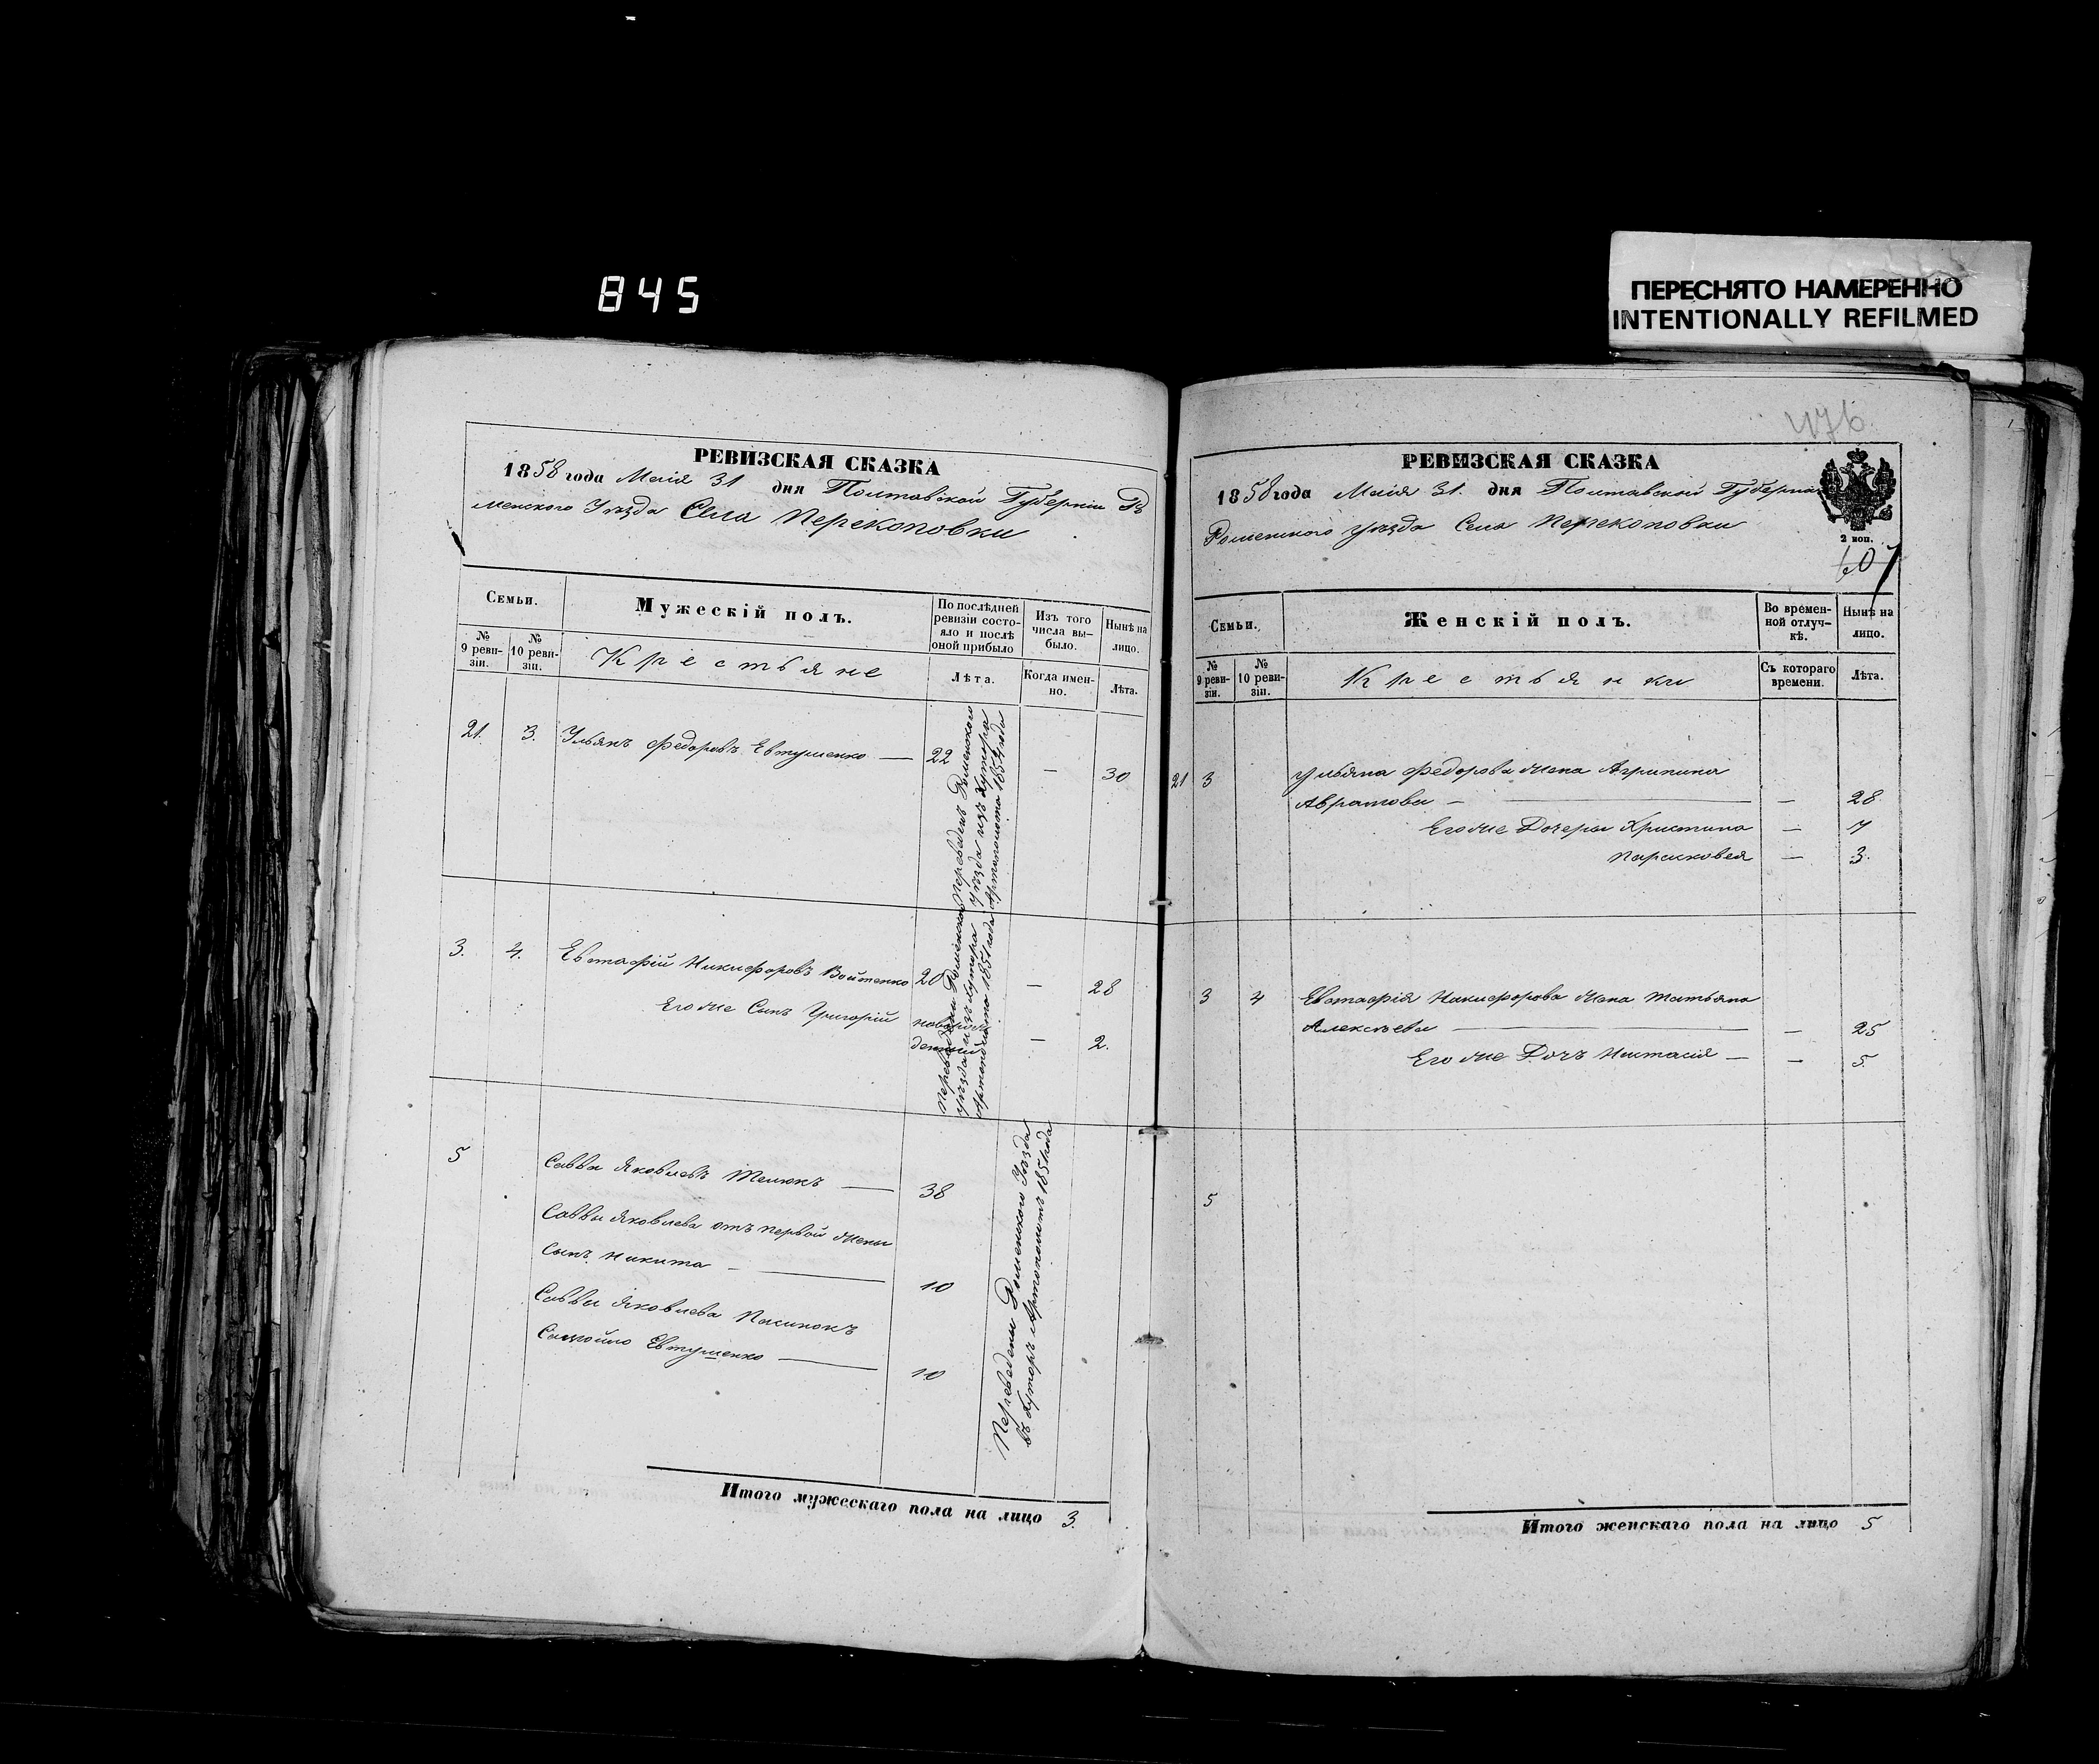 845
ПЕРЕСНЯТО НАМЕРЕННО
INTENTIONALLY REFILMED
РЕВИЗСКАЯ СКАЗКА
1858 года Маія 31 дня Полтавской Губерніи Ро
менского Уѣзда Села Перекоповки
Семьи.
Мужескій полъ.
По послѣдней ревизіи состояло и послѣ оной прибыло
Изъ того числа выбыло.
Нынѣ на лицо.
№ 9 ревизіи.
№ 10 ревизіи.
Крестьяне
Лѣта.
Когда именно.
Лѣта.
21. 3. Ульянъ Федоровъ Евтушенко — 22 — 30
Переведенъ Роменского
Уѣзда изъ Хутора
Артополота 1854 года
3. 4. Евстафій Никифоровъ Войтенко 20 — 28
Его же Сынъ Григорій новорож
денный — 2.
Переведены Роменского
Уѣзда изъ Хутора
Артополота 1851 года
5 Савва Яковлевъ Телюкъ — 38
Саввы Яковлева отъ первой жены
Сынъ Никита — 10
Саввы Яковлева Пасинокъ
Самойло Евтушенко — 10
Переведены Роменского Уѣзда
въ Хуторъ Артополотъ 1851 года
Итого мужескаго пола на лицо 3.
476
РЕВИЗСКАЯ СКАЗКА
1858 года Маія 31. дня Полтавской Губерніи
Роменского Уѣзда Села Перекоповки
2 коп.
607
Семьи.
Женскій полъ.
Во временной отлучкѣ.
Нынѣ на лицо.
№ 9 ревизіи.
№ 10 ревизіи.
Крестьянки
Съ котораго времени.
Лѣта.
21 3 Ульяна Федорова жена Агрипина
Аврамова — — 28
Его же Дочери Христина — 7
Парасковея — 3.
3 4 Евстафія Никифорова жена Татьяна
Алексѣева — — 25
Его же Дочъ Настасія — — 5.
5
Итого женскаго пола на лицо 5